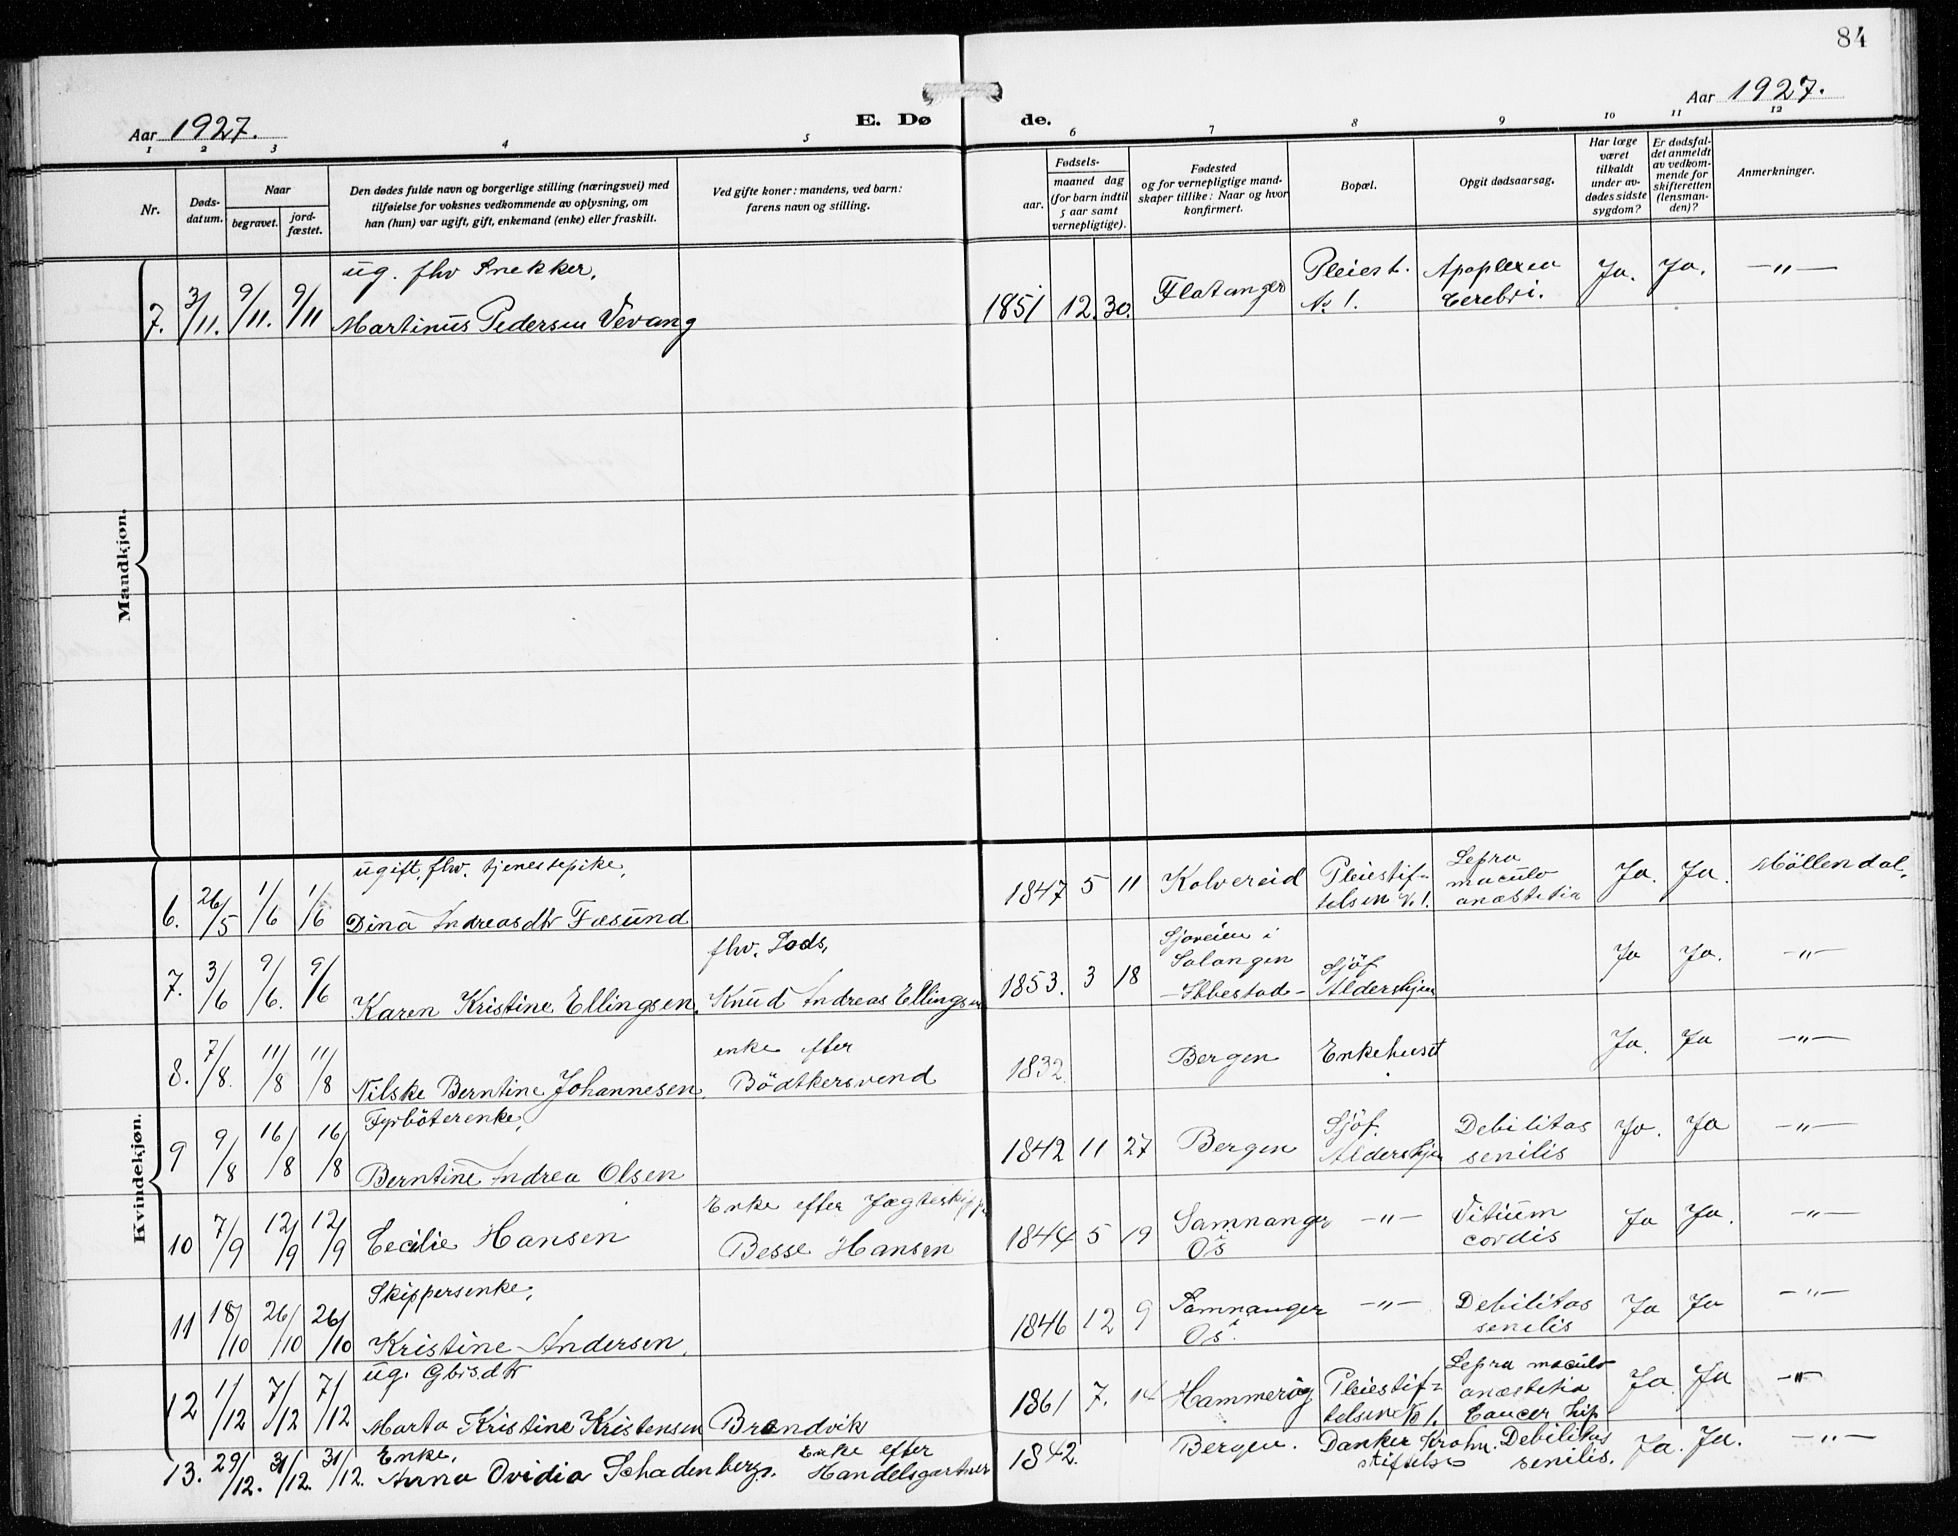 84
Aar 1927.
E. Dø de.
Aar 1927.
1 2 3 4 5 6 7 8 9 10 11 12
Nr.
Døds-
datum.
Naar
begravet.
jord-
fæstet.
Den dødes fulde navn og borgerlige stilling (næringsvei) med
tilføielse for voksnes vedkommende av oplysning, om
han (hun) var ugift, gift, enkemand (enke) eller fraskilt.
Ved gifte koner: mandens, ved barn:
farens navn og stilling.
Fødsels-
aar.
maaned dag
(for barn indtil
5 aar samt
vernepligtige).
Fødested
og for vernepligtige mand-
skaper tillike: Naar og hvor
konfirmert.
Bopæl.
Opgit dødsaarsag.
Har læge
været
tilkaldt
under av-
dødes sidste
sygdom?
Er dødsfal-
det anmeldt
av vedkom-
mende for
skifteretten
(lensman-
den)?
Anmerkninger.
Mandkjøn.
ug. fhv Snekker,
7. 3/11. 9/11. 9/11 Martinus Pedersen Vevang 1851 12. 30. Flatanger Pleiest. Apoplexia Ja. Ja. —"—
№ 1. Cerebri.
Kvindekjøn.
ugift, fhv. tjenestepike,
6. 26/5 1/6 1/6 Dina Andreasdtr Fæsund 1847 5 11 Kolvereid Pleiestif- Lepra Ja. Ja. Möllendal.
telsen № 1. maculo
anæstetia
fhv. Lods,
7. 3/6 9/6. 9/6 Karen Kristine Ellingsen. Knud Andreas Ellingsen 1853. 3 18 Sjoveien i Sjöf. Ja Ja. —"—
Salangen Aldershjem
— Ibbestad —
enke efter
8. 7/8. 11/8 11/8 Nilske Berntine Johannesen Bödtkersvend 1832. Bergen Enkehuset Ja. Ja —"—
Fyrböterenke,
9 9/8 16/8 16/8 Berntine Andrea Olsen 1842 11 27 Bergen Sjöf. Debilitas Ja. Ja —"—
Aldershjem senilis
Enke efter Jægteskipper
10 7/9 12/9 12/9 Cecilie Hansen Besse Hansen 1844 5 19 Samnanger —"— Vitium Ja Ja. —"—
i Os cordis
Skippersenke,
11 18/10 26/10 26/10 Kristine Andersen. 1846 12 9 Samnanger —"— Debilitas Ja Ja —"—
i Os. senilis
ug. Gbrs.dtr
12 1/12 7/12 7/12 Marta Kristine Kristensen Brandvik 1861 7. 14 Hammerög Pleiestif- Lepra maculo Ja Ja —"—
telsen № 1. anæstetia
Cancer hip
Enke, Enke efter
13. 29/12. 31/12. 31/12. Anna Ovidia Schadenberg. Handelsgartner 1842. Bergen. Danker Krohn. Debilitas Ja. Ja. —"—
stiftelse senilis.